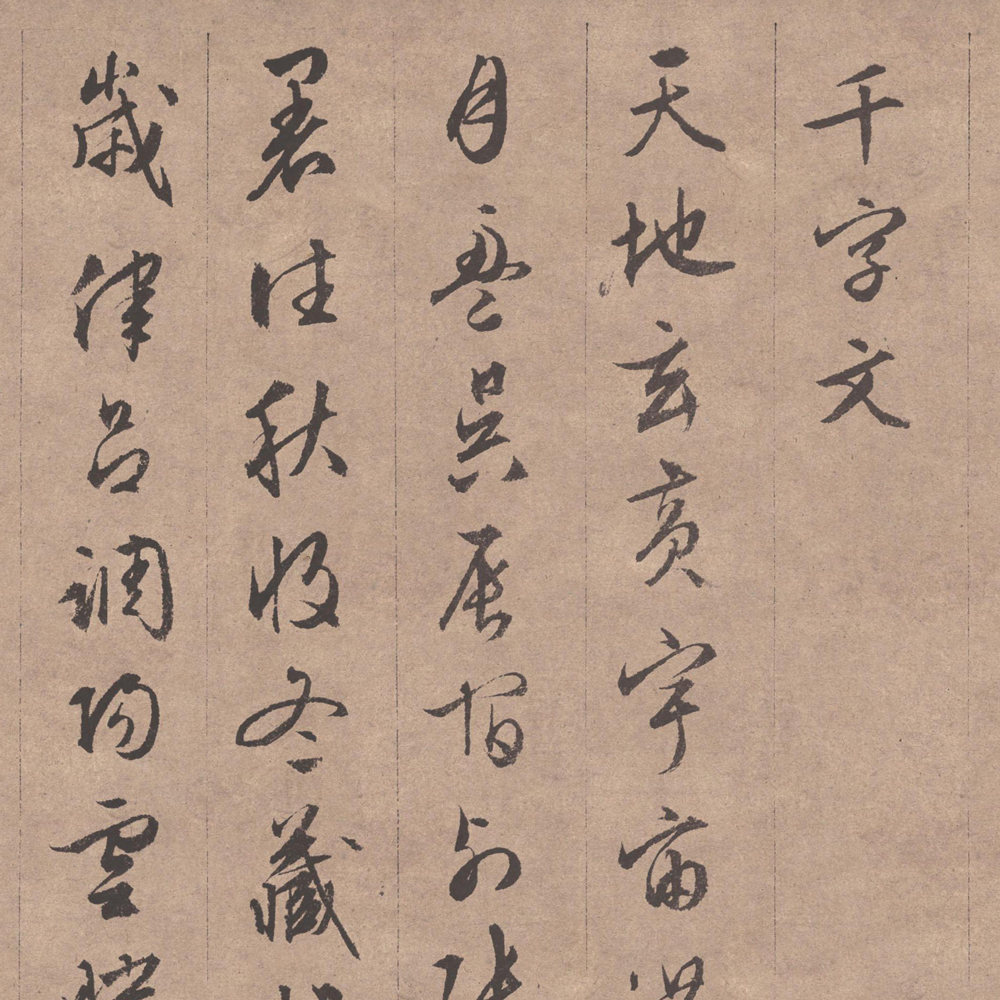 千字文
天地玄黃宇宙
月盈昃辰宿列張
暑往秋收冬藏
歲律呂調陽雲